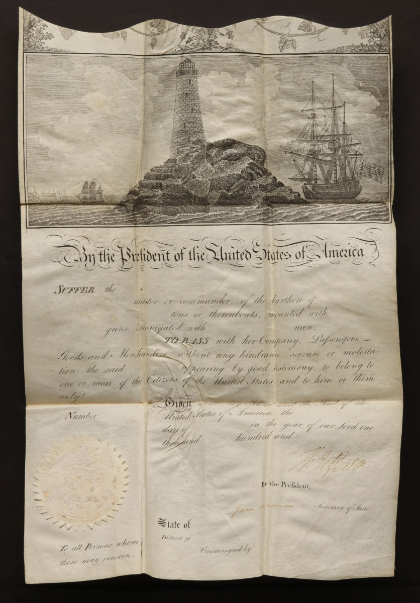 By the President of the United States of America
SUFFER the
master or commander of the burthen of
tons or thereabouts, mounted with
guns, navigated with men,
TO PASS with her Company, Passengers
Goods and Merchandize without any hindrance, seizure or molesta-
tion the said appearing by good testimony to belong to
one or more of the Citizens of the United States and to him or them
only.
Given of the
Number
United States of America, the
day of in the year of our Lord one
thousand hundred and
By the President,
Secretary of State
State of
District of
Countersigned by
To all Persons whom
these may concern.